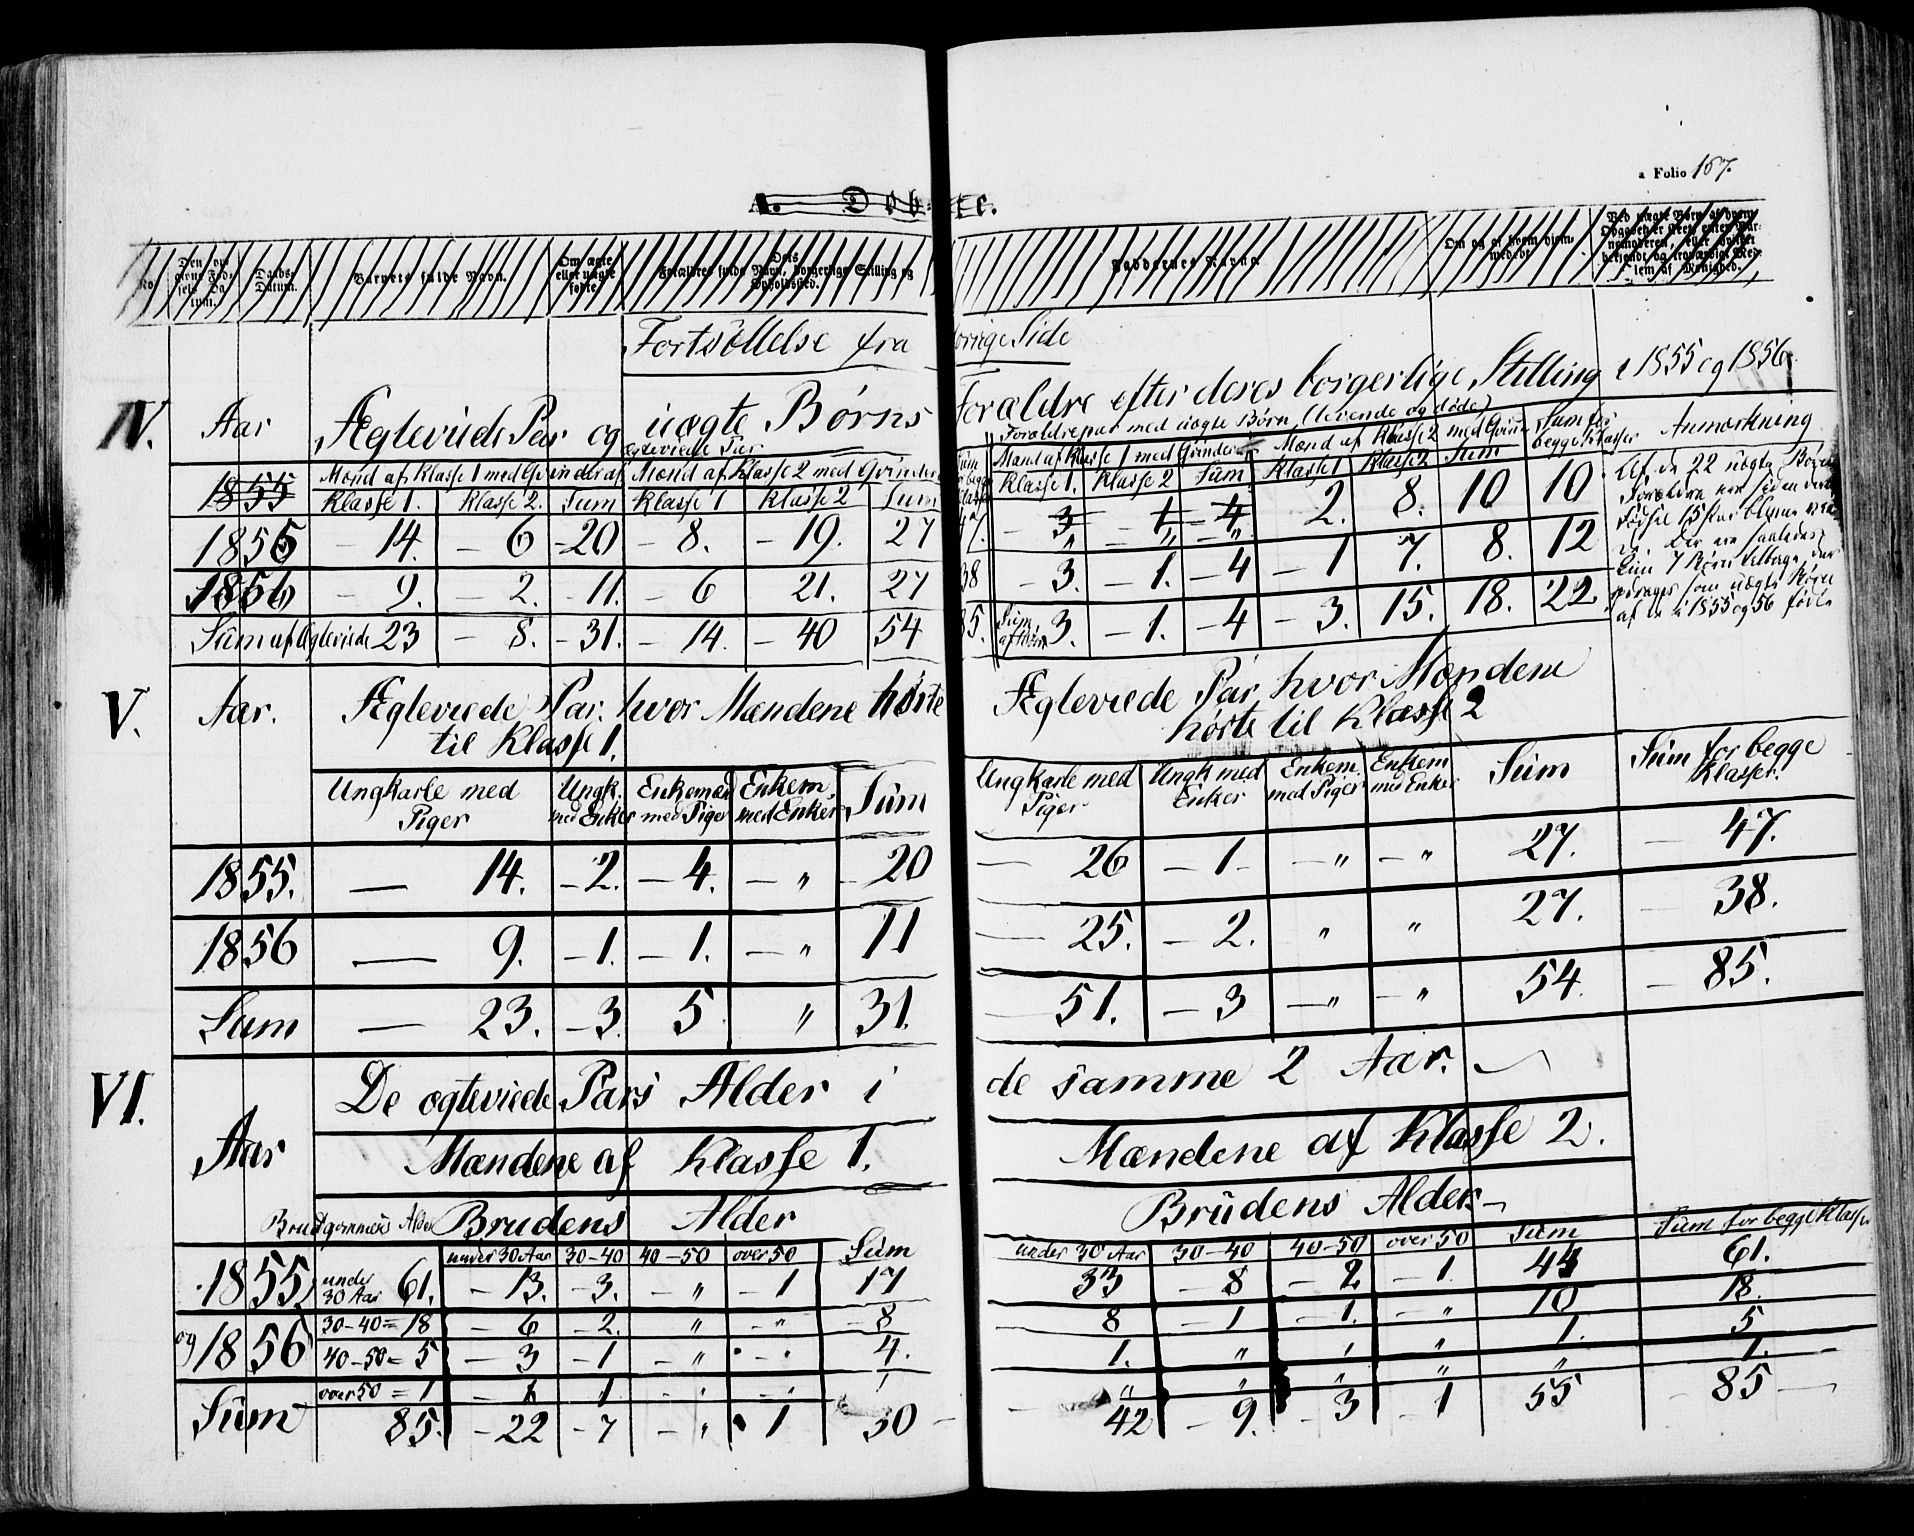 a Folio 167.
A. Døbte.
No.
Barnets fulde Navn.
Daabs-Datum.
Om ægte eller uægte fødte.
Faddernes Navne.
Fortsættelse fra forrige Side
IV. Aar Ægteviede Par og uægte Børns Forældre efter deres borgerlige Stilling i 1855 og 1856.
Ægteviede Par
Forældrepar med uægte Børn (levende og døde)
Anmærkning
1855 Mænd af Klasse 1 med Qvinder af Mænd af Klasse 2 med Qvinder
Mænd af Klasse 1 med Qvinder Mænd af Klasse 2 med Qvin Sum for begge Klasser
Klasse 1. Klasse 2. Sum Klasse 1 Klasse 2 Sum
Klasse 1. Klasse 2 Sum Klasse 1 Klasse 2 Sum
1855 – 14. – 6 – 20 – 8. – 19. 27 47. – 3 – 1 – 4 2. 8. 10 10
1856 – 9. – 2. – 11. – 6 21. 27 38 – 3. – 1. – 4 – 1 7. 8. 12
Sum af Ægteviede 23 – 8. – 31. – 14 – 40 54 85. Sum 3. – 1. – 4 – 3. 15. 18. 22
Af de 22 uægte Børns
Forældre ere siden
af de i 1855 og 56 fødte
V. Aar. Ægteviede Par. hvor Mændene hørte
til Klasse 1.
Ægteviede Par, hvor Mændene
hørte til Klasse 2
Ungkarle med Piger Ungk. med Enker Enkemæn med Piger Enkem. med Enker Sum
Ungkarle med Piger Ungk med Enker Enkem. med Piger Enkem med Enker Sum Sum for begge Klasser.
1855. — 14. – 2. – 4. – " – 20 — 26 – 1 – – " – " 27. – 47.
1856 — 9. – 1. – 1. – " 11 — 25. – 2. " " 27. – 38.
Sum — 23. – 3. 5 " 31. 51. – 3 – " – " 54 – 85.
VI. Aar De ægteviede Pars Alder i de samme 2 Aar.
Mændene af Klasse 1. Mændene af Klasse 2.
Brudgommens Alder Brudens Alder Brudens Alder –
under 30 Aar 30–40 40–50 over 50 Sum under 30 Aar 30–40 40–50 over 50 Sum Sum for begge Klasser
1855, under 30 Aar 61. – 13. – 3. – " – 1 17 33 – 8 – 2 – 1. 44 61.
og 1856 30–40 = 18 – 6 – 2. " – " – 8 8 – 1 – 1. – " 10 18.
40–50 = 5 – 3 – 1 – " 4. 1. " " " 1. 5
over 50 = 1 1 " " " " " 1.
Sum 85. – 22 – 7 – " 1 30 – 42 – 9. – 3 – 1 55 – 85 –